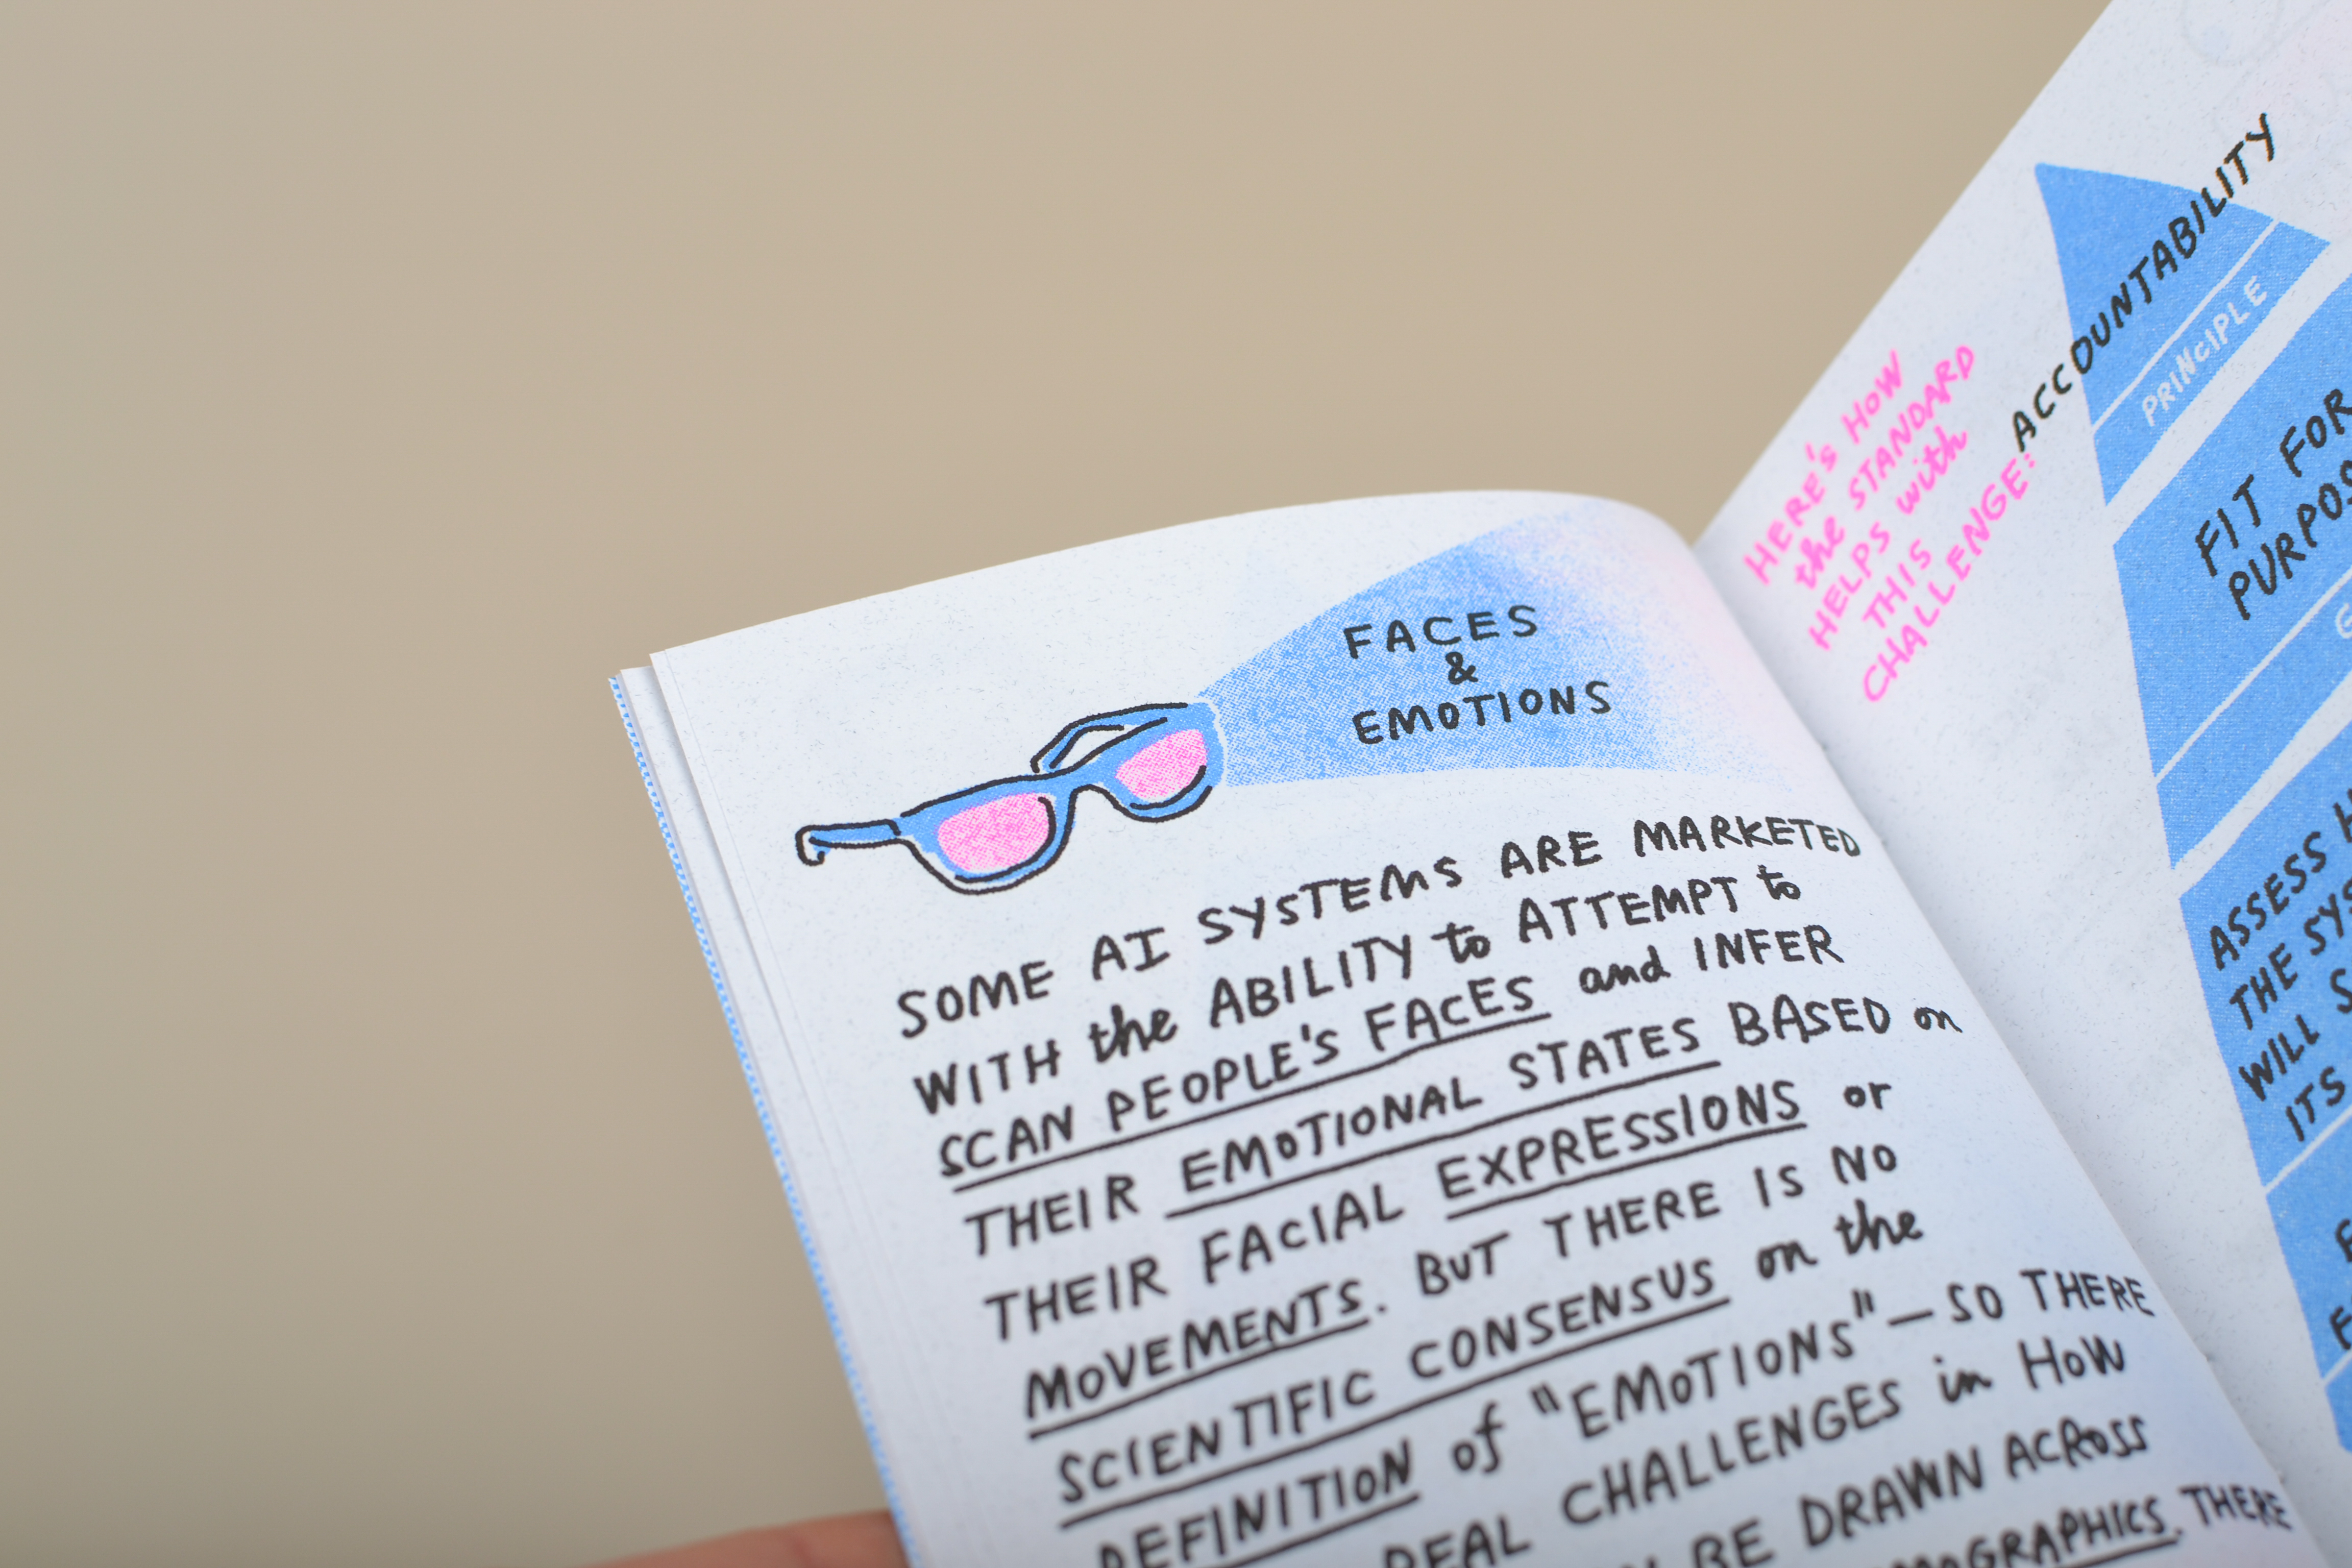 FACES
&
EMOTIONS
SOME AI SYSTEMS ARE MARKETED
WITH the ABILITY to ATTEMPT to
SCAN PEOPLE'S FACES and INFER
THEIR EMOTIONAL STATES BASED on
THEIR FACIAL EXPRESSIONS or
MOVEMENTS. BUT THERE IS NO
SCIENTIFIC CONSENSUS on the
DEFINITION of "EMOTIONS"—SO THERE
REAL CHALLENGES in HOW
BE DRAWN ACROSS
THERE
HERE'S HOW
the STANDARD
HELPS with
THIS
CHALLENGE:
ACCOUNTABILITY
PRINCIPLE
FIT FOR
ASSESS
THE
WILL
ITS